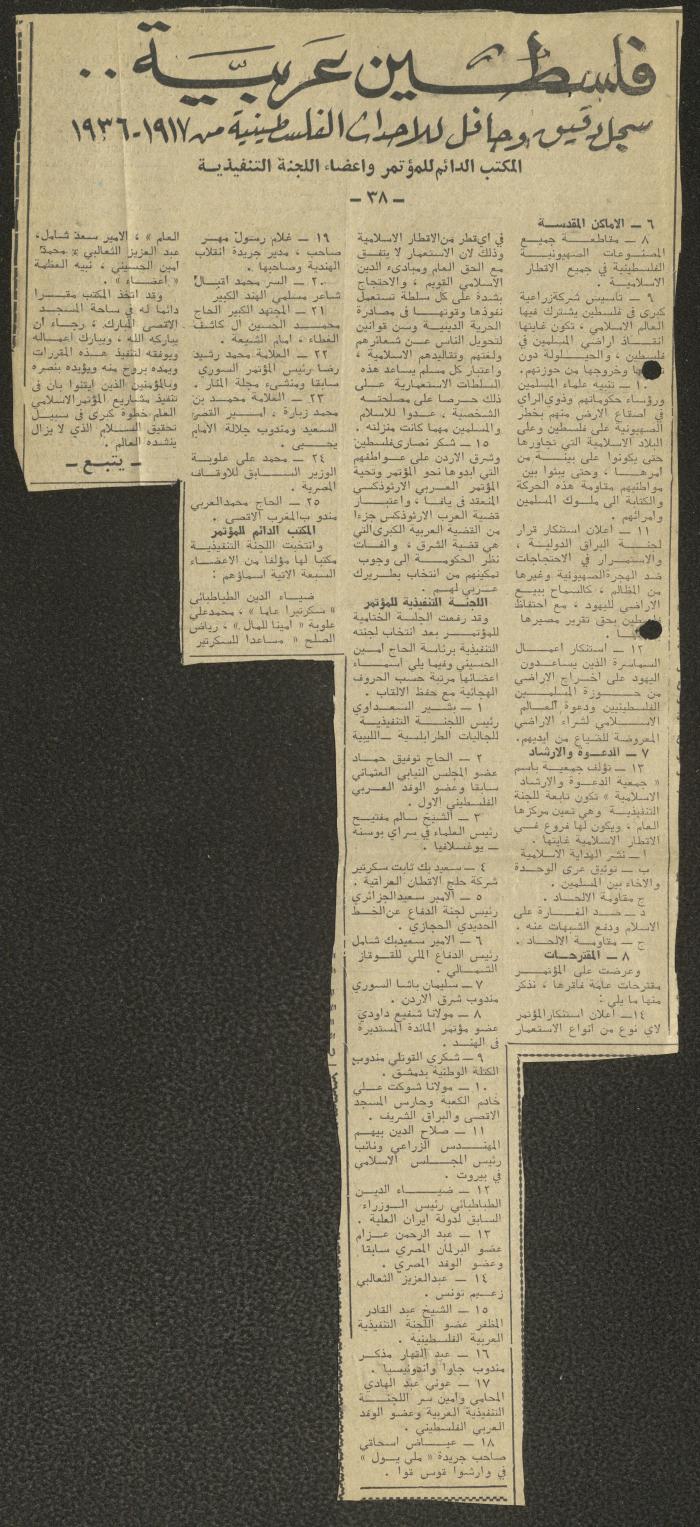 فلسطين عربية ..
سجل دقيق وحافل للاحداث الفلسطينية من ١٩١٧ - ١٩٣٦
المكتب الدائم للمؤتمر واعضاء اللجنة التنفيذية
— ٣٨ —
٦ — الاماكن المقدسة
٨ — مقاطعة جميع
المصنوعات الصهيونية
الفلسطينية في جميع الاقطار
الاسلامية .
٩ — تأسيس شركة زراعية
كبرى في فلسطين يشترك فيها
العالم الاسلامي ، تكون غايتها
انقاذ اراضي المسلمين في
فلسطين ، والحيلولة دون
وخروجها من حوزتهم .
١٠ — تنبيه علماء المسلمين
ورؤساء حكوماتهم وذوي الراي
في اصقاع الارض منهم بخطر
الصهيونية على فلسطين وعلى
البلاد الاسلامية التي تجاورها
حتى يكونوا على بينة من
امرها ، وحتى يبثوا بين
مواطنيهم مقاومة هذه الحركة
والكتابة الى ملوك المسلمين
وامرائهم .
١١ — اعلان استنكار قرار
لجنة البراق الدولية ،
والاستمرار في الاحتجاجات
ضد الهجرة الصهيونية وغيرها
من المظالم ، كالسماح ببيع
الاراضي لليهود ، مع احتفاظ
فلسطين بحق تقرير مصيرها
١٢ — استنكار اعمال
السماسرة الذين يساعدون
اليهود على اخراج الاراضي
من حوزة المسلمين
الفلسطينيين ودعوة العالم
الاسلامي لشراء الاراضي
المعروضة للضياع من ايديهم.
٧ — الدعوة والارشاد
١٣ — تؤلف جمعية باسم
« جمعية الدعوة والارشاد
الاسلامية » تكون تابعة للجنة
التنفيذية وهي تعين مركزها
العام ، ويكون لها فروع في
الاقطار الاسلامية غايتها .
ا — نشر الهداية الاسلامية
ب — توثيق عرى الوحدة
والاخاء بين المسلمين .
ج مقاومة الالحاد .
د — صد الغارة على
الاسلام ودفع الشبهات عنه .
ج — مقاومة الالحاد .
٨ — المقترحات
وعرضت على المؤتمر
مقترحات عامة فاقرها ، نذكر
منها ما يلي :
١٤ — اعلان استنكار المؤتمر
لاي نوع من انواع الاستعمار
في اي قطر من الاقطار الاسلامية
وذلك لان الاستعمار لا يتفق
مع الحق العام ومبادىء الدين
الاسلامي القويم ، والاحتجاج
بشدة على كل سلطة تستعمل
نفوذها وقوتها في مصادرة
الحرية الدينية وسن قوانين
لتحويل الناس عن شعائرهم
ولغتهم وتقاليدهم الاسلامية ،
واعتبار كل مسلم يساعد هذه
السلطات الاستعمارية على
ذلك حرصا على مصلحته
الشخصية ، عدوا للاسلام
والمسلمين مهما كانت منزلته .
١٥ — شكر نصارى فلسطين
وشرق الاردن على عواطفهم
التي ابدوها نحو المؤتمر وتحية
المؤتمر العربي الارثوذكسي
المنعقد في يافا ، واعتبار
قضية العرب الارثوذكس جزءا
من القضية العربية الكبرى التي
هي قضية الشرق ، والفات
نظر الحكومة الى وجوب
تمكينهم من انتخاب بطريرك
عربي لهم .
اللجنة التنفيذية للمؤتمر
وقد رفعت الجلسة الختامية
للمؤتمر بعد انتخاب لجنته
التنفيذية برئاسة الحاج امين
الحسيني وفيما يلي اسماء
اعضائها مرتبة حسب الحروف
الهجائية مع حفظ الالقاب .
١ — بشير السعداوي
رئيس اللجنة التنفيذية
للجاليات الطرابلسية — الليبية
٢ — الحاج توفيق حماد
عضو المجلس النيابي العثماني
سابقا وعضو الوفد العربي
الفلسطيني الاول .
٣ — الشيخ سالم مفتيح
رئيس العلماء في سراي بوسنه
— يوغسلافيا .
٤ — سعيد بك ثابت سكرتير
شركة حلج الاقطان العراقية .
٥ — الامير سعيد الجزائري
رئيس لجنة الدفاع عن الخط
الحديدي الحجازي .
٦ — الامير سعيد بك شامل
رئيس الدفاع الملي للقوقاز
الشمالي .
٧ — سليمان باشا السوري
مندوب شرق الاردن .
٨ — مولانا شفيع داودي
عضو مؤتمر المائدة المستديرة
في الهند .
٩ — شكري القوتلي مندوب
الكتلة الوطنية بدمشق .
١٠ — مولانا شوكت علي
خادم الكعبة وحارس المسجد
الاقصى والبراق الشريف .
١١ — صلاح الدين بيهم
المهندس الزراعي ونائب
رئيس المجلس الاسلامي
في بيروت .
١٢ — ضياء الدين
الطباطبائي رئيس الوزراء
السابق لدولة ايران العلية .
١٣ — عبد الرحمن عزام
عضو البرلمان المصري سابقا
وعضو الوفد المصري .
١٤ — عبدالعزيز الثعالبي
زعيم تونس .
١٥ — الشيخ عبد القادر
المظفر عضو اللجنة التنفيذية
العربية الفلسطينية .
١٦ — عبد القهار مذكر
مندوب جاوا واندونيسيا .
١٧ — عوني عبد الهادي
المحامي وامين سر اللجنة
التنفيذية العربية وعضو الوفد
العربي الفلسطيني .
١٨ — عياض اسحاقي
صاحب جريدة « ملي يول »
في وارشوا قوس قوا .
١٩ — غلام رسول مهر
صاحب ، مدير جريدة انقلاب
الهندية وصاحبها .
٢٠ — السر محمد اقبال
شاعر مسلمي الهند الكبير
٢١ — المجتهد الكبير الحاج
محمد الحسين ال كاشف
الغطاء ، امام الشيعة .
٢٢ — العلامة محمد رشيد
رضا رئيس المؤتمر السوري
سابقا ومنشىء مجلة المنار .
٢٣ — العلامة محمد بن
محمد زبارة ، امير القصر
السعيد ومندوب جلالة الامام
يحيى .
٢٤ — محمد علي علوبة
الوزير السابق للاوقاف
المصرية .
٢٥ — الحاج محمد العربي
مندوب المغرب الاقصى .
المكتب الدائم للمؤتمر
وانتخبت اللجنة التنفيذية
مكتبا لها مؤلفا من الاعضاء
السبعة الاتية اسماؤهم :
ضياء الدين الطباطبائي
« سكرتيرا عاما » ، محمد علي
علوبة « امينا للمال » ، رياض
الصلح « مساعدا للسكرتير
العام » ، الامير سعيد شامل ،
عبد العزيز الثعالبي ، محمد
امين الحسيني ، نبيه العظمة
« اعضاء » .
وقد اتخذ المكتب مقرا
دائما له في ساحة المسجد
الاقصى المبارك ، رجاء ان
يباركه الله ، ويبارك اعماله
ويوفقه لتنفيذ هذه المقررات
ويمده بروح منه ويؤيده بنصره
وبالمؤمنين الذين ايقنوا بان في
تنفيذ مشاريع المؤتمر الاسلامي
العام خطوة كبرى في سبيل
تحقيق السلام الذي لا يزال
ينشده العالم .
— يتبع —